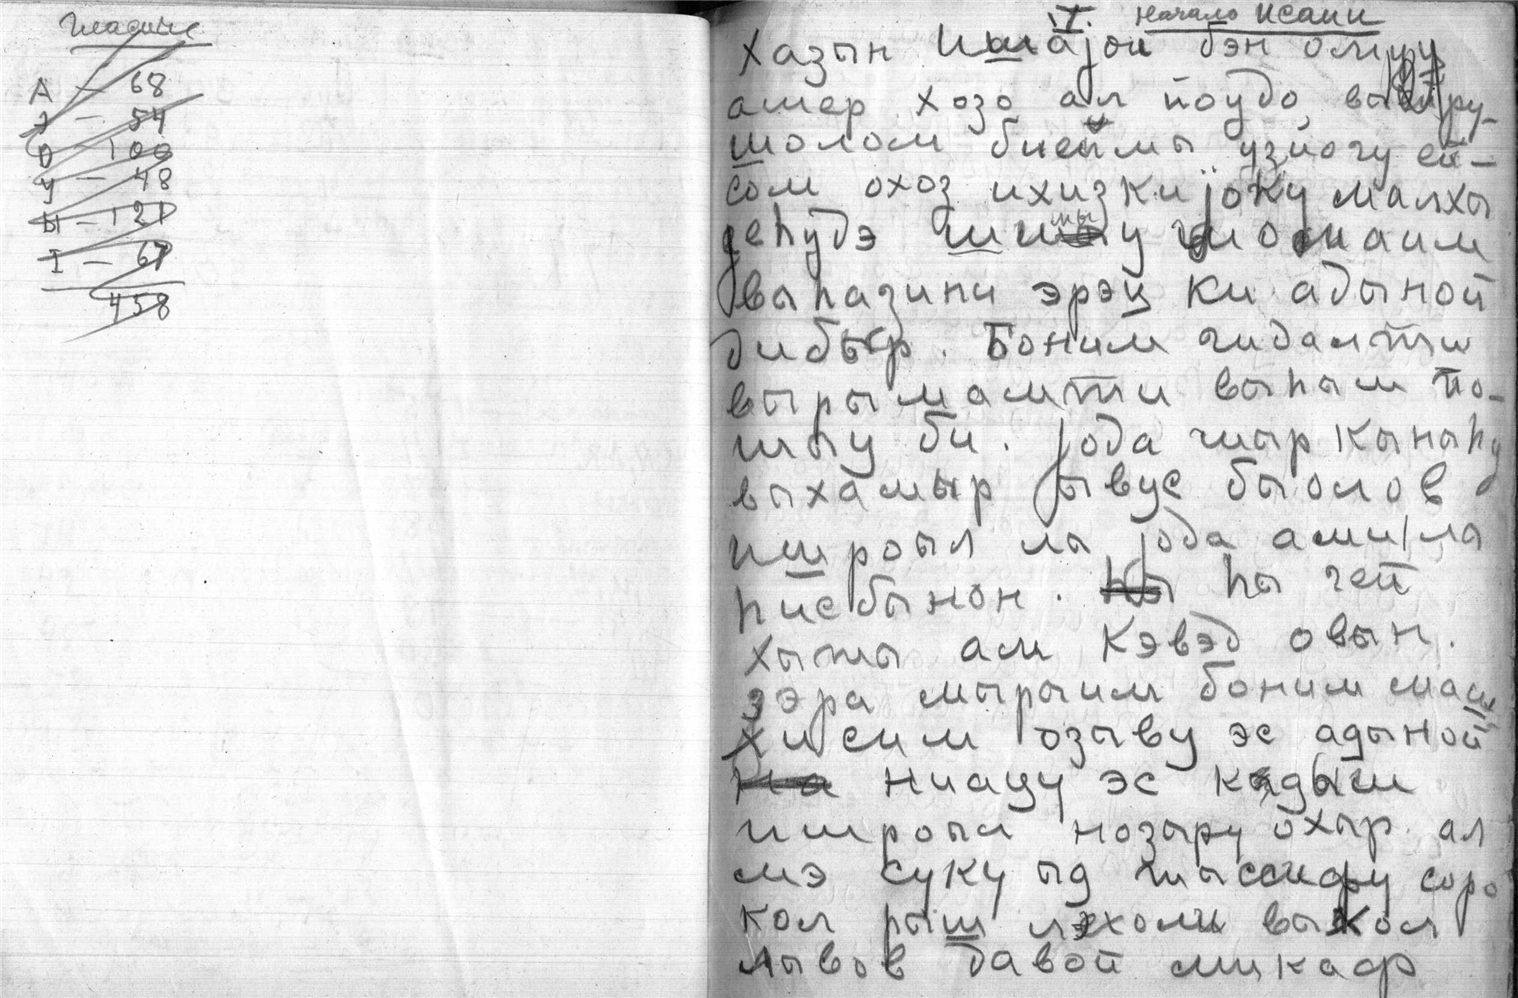 Гласные
А – 68
Э – 54
О – 100
У – 48
Ы – 121
І – 67
458
I. начало Исаии
хазын Ишаjоы бэн омуц
ашер хозо ал йоудо, вы ру-
шолом биеймы узиогу ей-
сом охоз ихизкиjоhу малхы
jеhудэ шимыу шомаим
выhазини эрэц ки адыной
дибыр. Боним гидалти
вырымамти выhым по-
шыу би. jода шыр кыныhу
выхамыр ывус быолов
ишроыл лы jода ами ла
hисбынон. hы гей
хыты ам кэвэд овын.
зэра мырыим боним маш
хисим озыву эс адыной
ниацу эс кыдыш
ишроыл нозыру охыр. ал
мэ суку ыд тыссифу соро
кол рыш лэхоли выкол
лывов давой микаф